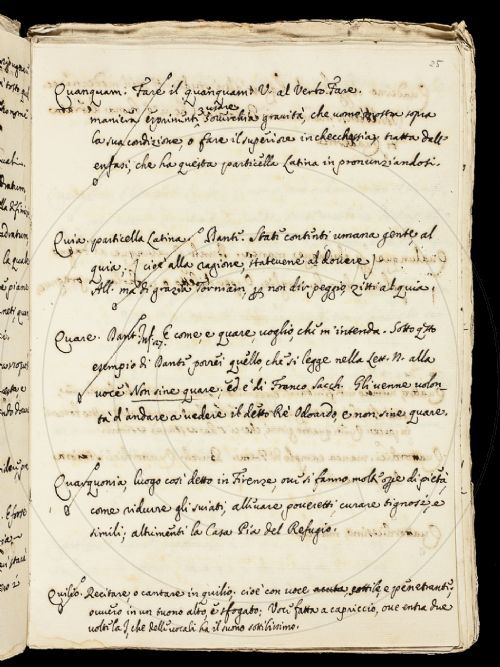 25
Quanquam. Fare il quanquam V. al Verbo Fare.
maniera esprimente soverchia gravità, che uomo mostra sopra
la sua condizione, o fare il superiore in checchessia, tratta dall'
enfasi, che ha questa particella Latina in pronunziandosi.
Quia. particella Latina. Dante. State contenti umana gente al
quia. (cioè alla cagione, statevene al dovere)
All. ma di grazia torniam, per non dir peggio, zitti al quia.
Quare. Dant. Inf. 27. E come, e quare, voglio, che m'intenda. Sotto questo
esempio di Dante porrei quello, che si legge nella Lett. N. alla
voce Non sine quare, ed è di Franco Sacch. Gli venne volon
tà d'andare a vedere il detto Re Odoardo, e non sine quare.
Quarquonia, luogo così detto in Firenze, ove si fanno molte opere di pietà,
come ridurre gli sviati, allevare poveretti curare tignosi, e
simili; altrimenti la Casa Pia del Refugio.
Quilio. Recitare o cantare in quilio, cioè con voce acuta, sottile e penetrante,
ovvero in un tuono alto, e sfogato; Voce fatta a capriccio, ove entra due
volte la I che delle vocali ha il suono sottilissimo.